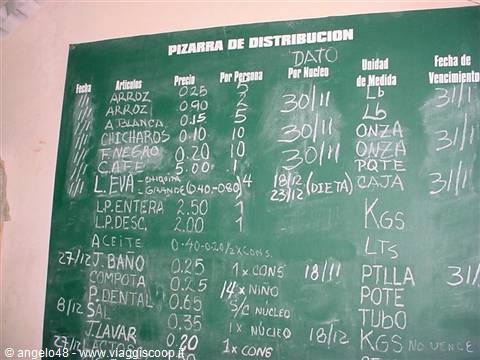 PIZARRA DE DISTRIBUCION
DATO
Fecha Articulos Precio Por Persona Por Nucleo Unidad de Medida Fecha de Vencimiento
ARROZ 0.25 Lb 31/1
ARROZ 0.90 2 30/11 Lb
A.BLANCA 0.15 5
CHICHAROS 0.10 10 30/11 ONZA 31/1
F.NEGRO 0.20 10 ONZA
CAFE 5.00 1 30/11 PQTE
L. EVA - CHIQUITA GRANDE (0.40-080) 4 18/12 23/12 (DIETA) CAJA 31/1
LP. ENTERA 2.50 1 KGS
LP. DESC. 2.00 1
ACEITE 0-40-0.20/2XCONS. LTs
27/12 J. BAÑO 0.25 1x CONS 18/11 PTLLA 31/
COMPOTA 0.25 14 x NIÑO POTE
P. DENTAL 0.65 S/C NUCLEO TUBO
8/12 SAL 0.35 1x NÚCLEO 18/12 KGS NO VENCE
J. LAVAR 0.20 1x CONS
27/12
© angelo48 - www.viaggiscoop.it